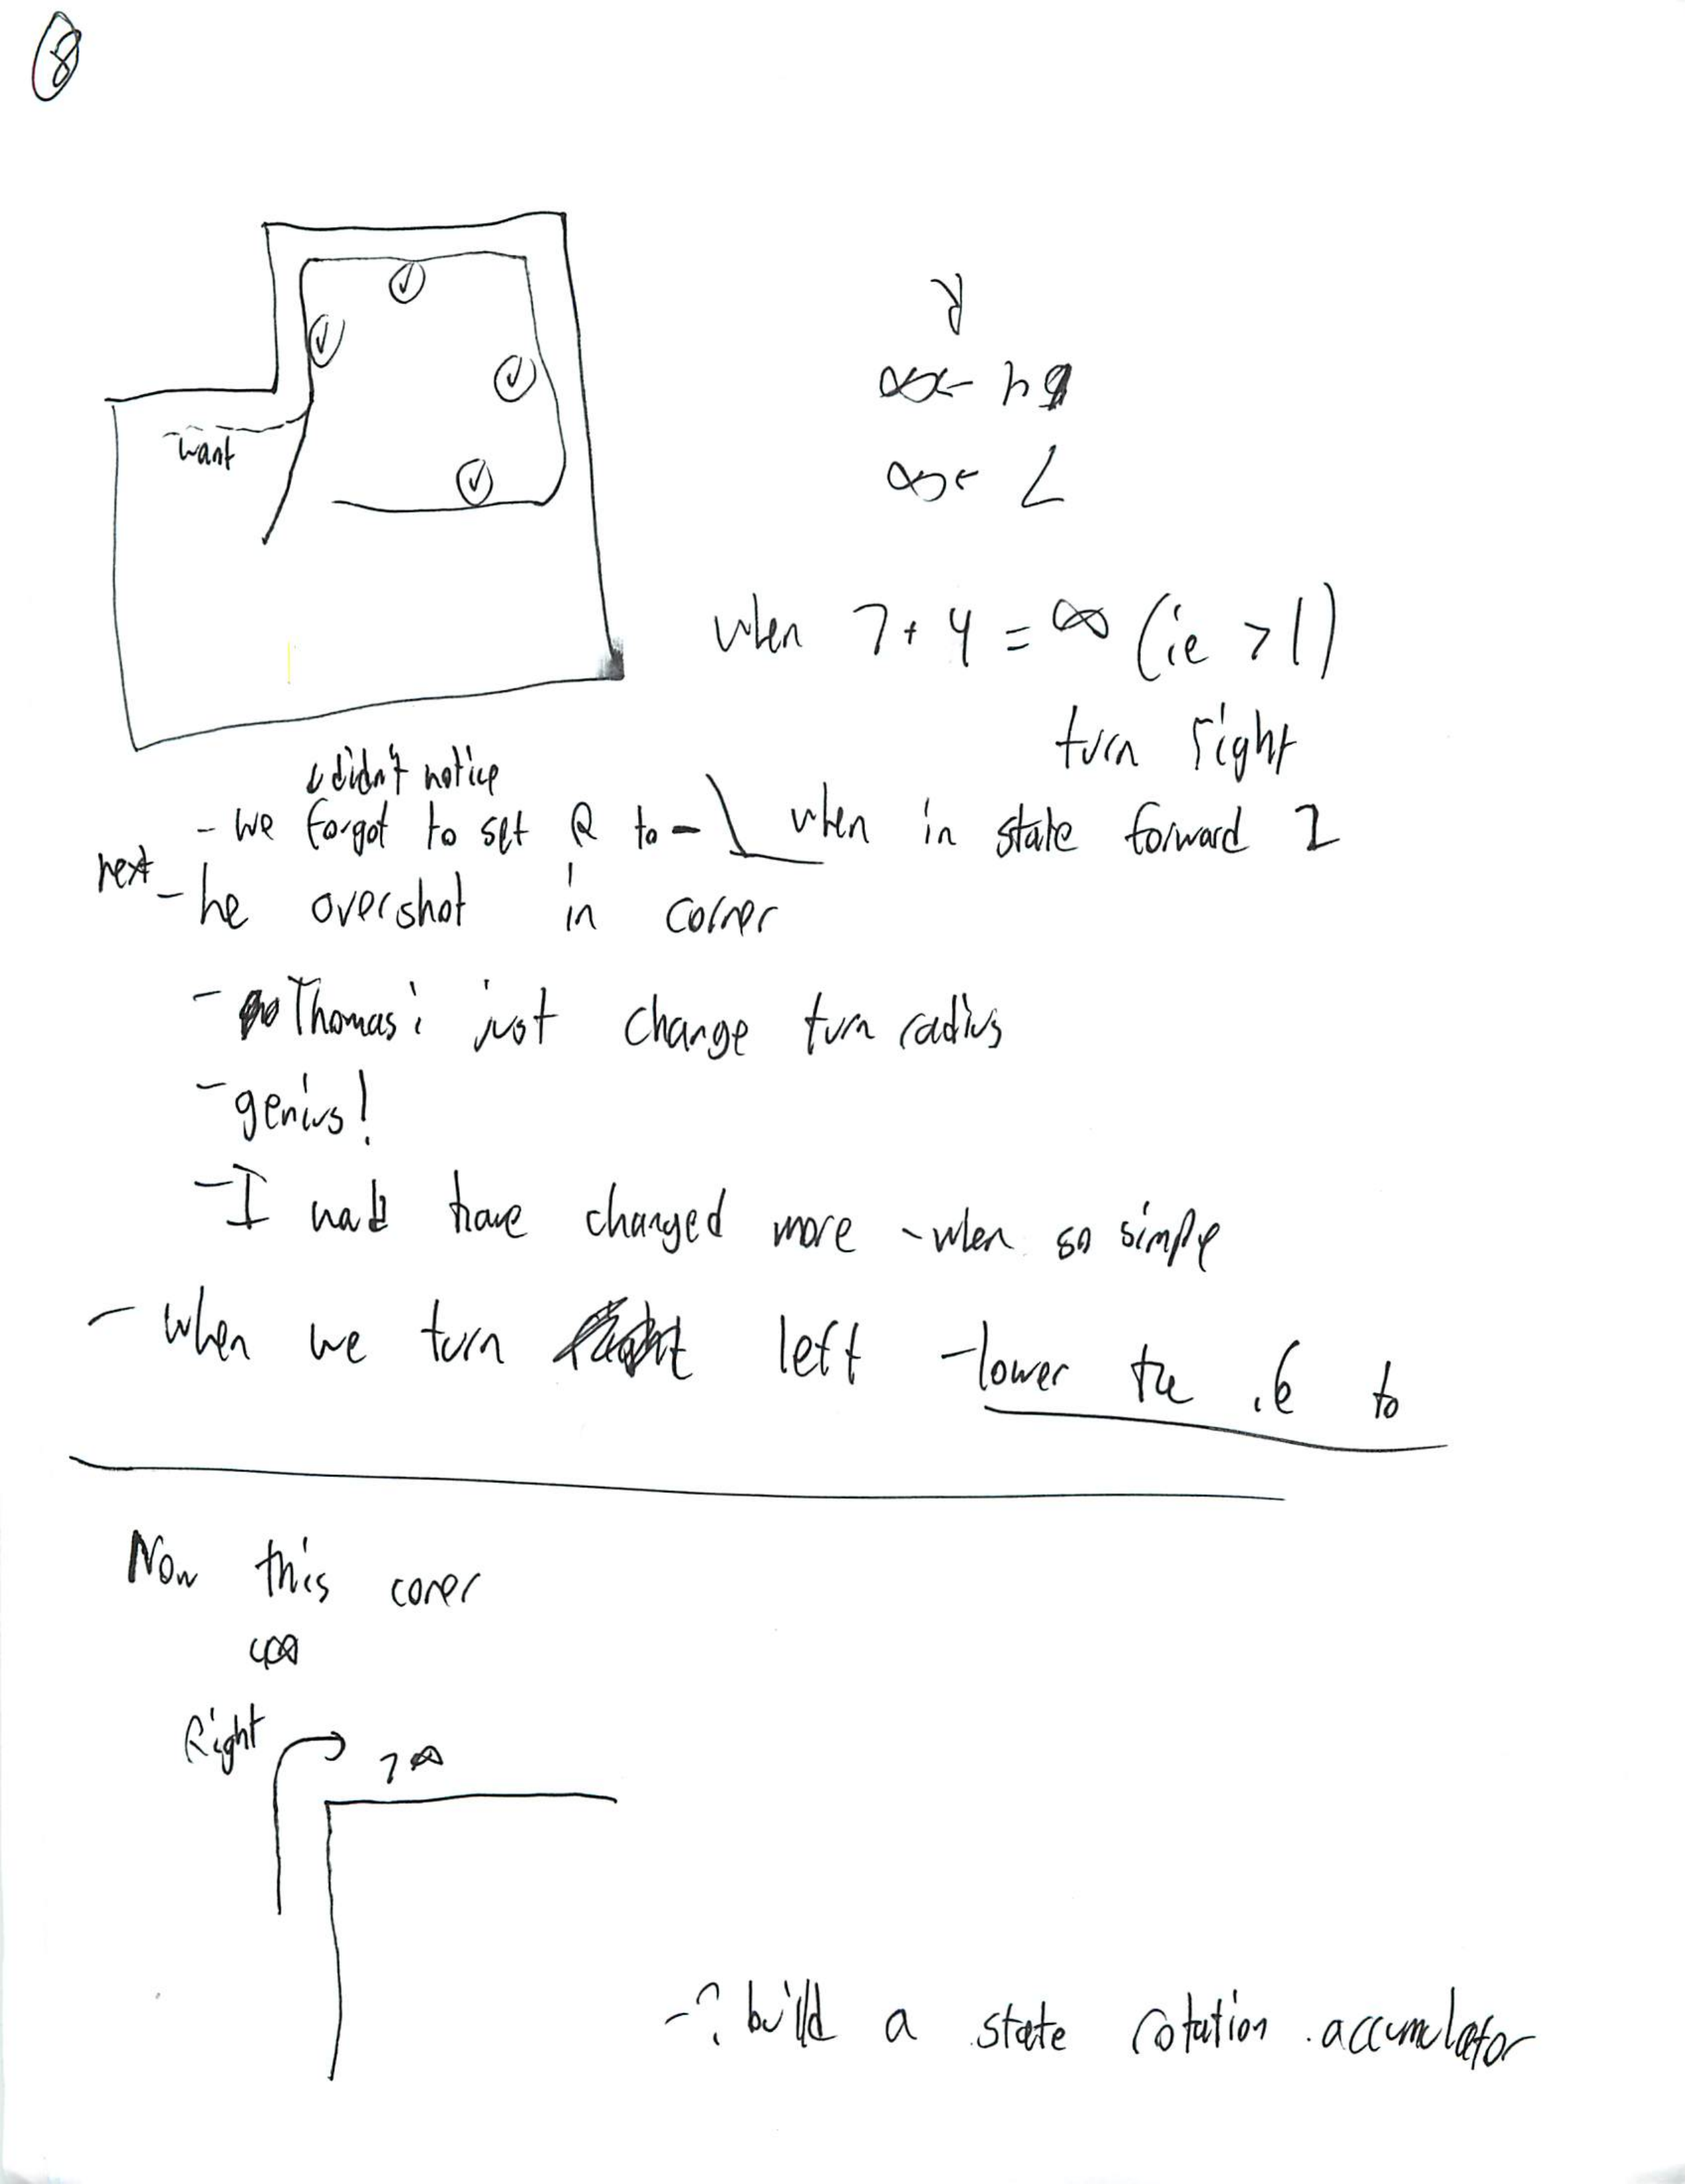 8
want
∞ ← 4
∞ ← 7
when 7+4 = ∞ (ie >1)
turn right
didn't notice
- we forgot to set R to - when in state forward 2
next - he overshot in corner
- Thomas: just change turn radius
- genius!
- I have changed more - when so simple
- when we turn left - lower the .6 to
Now this corer
4∞
Right
7∞
-? build a state rotation accumulator